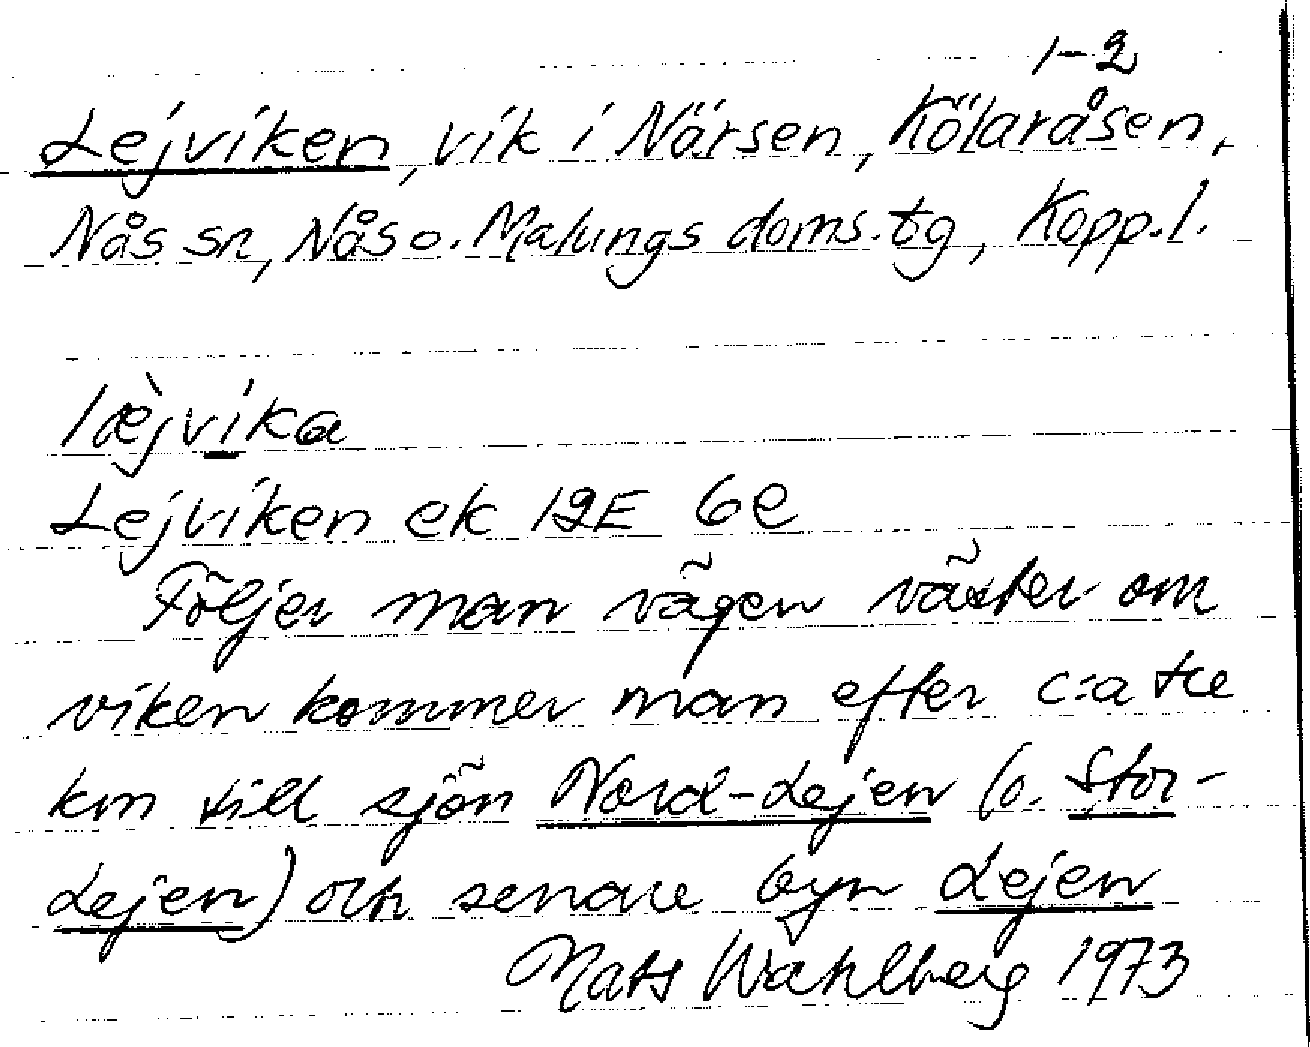 1-2
Lejviken, vik i Närsen, Kölaråsen,
Nås sn, Nås o. Malungs doms.tg, Kopp.l.
læ̀jvika
Lejviken ek 12E 6e
Följer man vägen väster om
viken kommer man efter c:a tre
km till sjön Nord-Lejen (o. Stor-
Lejen) och senare byn Lejen
Mats Wahlberg 1973